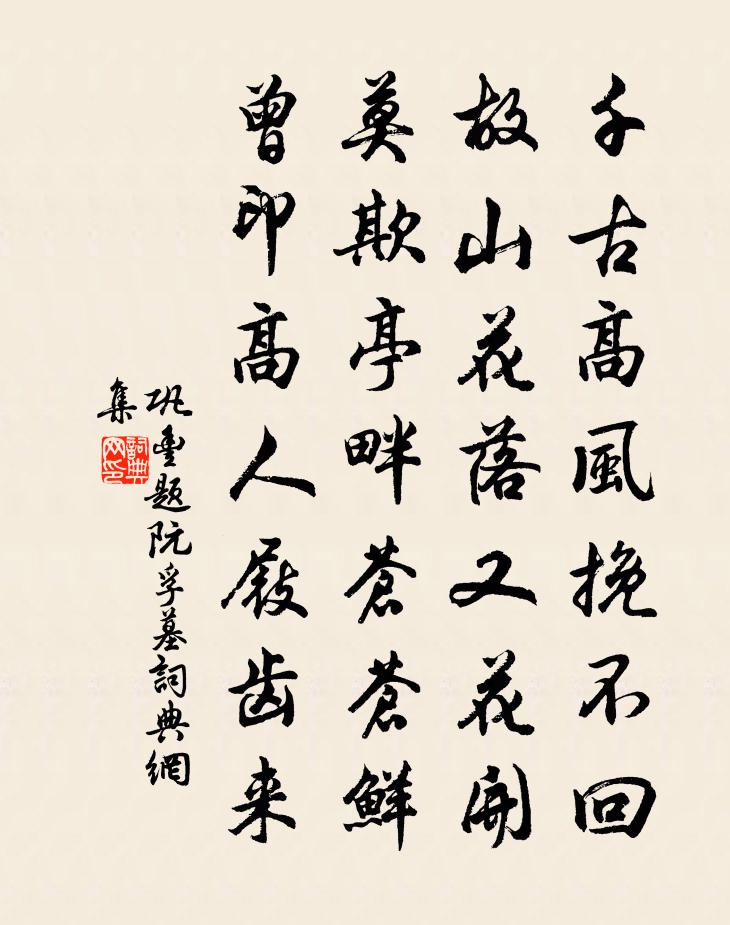 千古高風挽不回
故山花落又花開
莫欺亭畔蒼蒼鮮
曾印高人屐齿来
巩豊题阮孚墓詞典網
集
詞典
网印